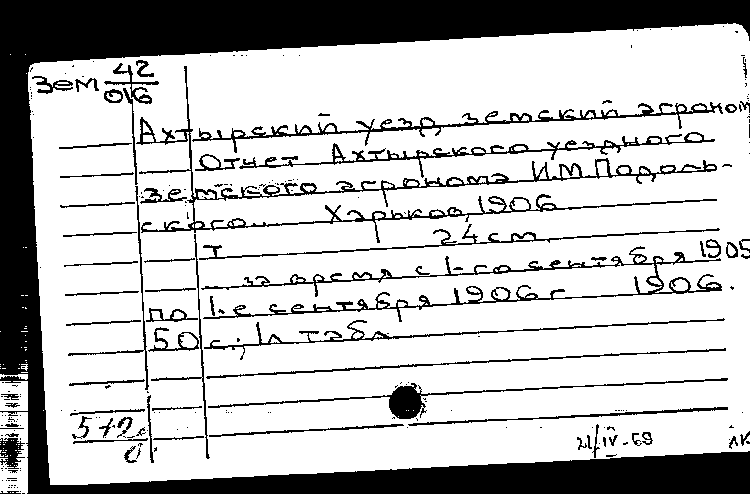 Зем 42/016
Ахтырский уезд, земский агроном
Отчет Ахтырского уездного
земского агронома И.М.Подоль-
ского.. Харьков, 1906
т 24 см.
... за время с 1-го сентября 1905
по 1-е сентября 1906 г 1906.
50 с.; 1л табл
21/IV-69 ЛК